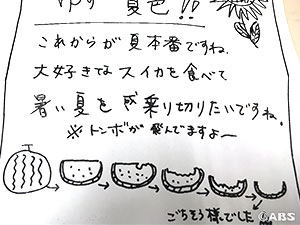 夏色!!
これからが夏本番ですね。
大好きなスイカを食べて
暑い夏を乗り切りたいですね。
※トンボが飛んでますよ〜
ごちそう様でした
©ABS